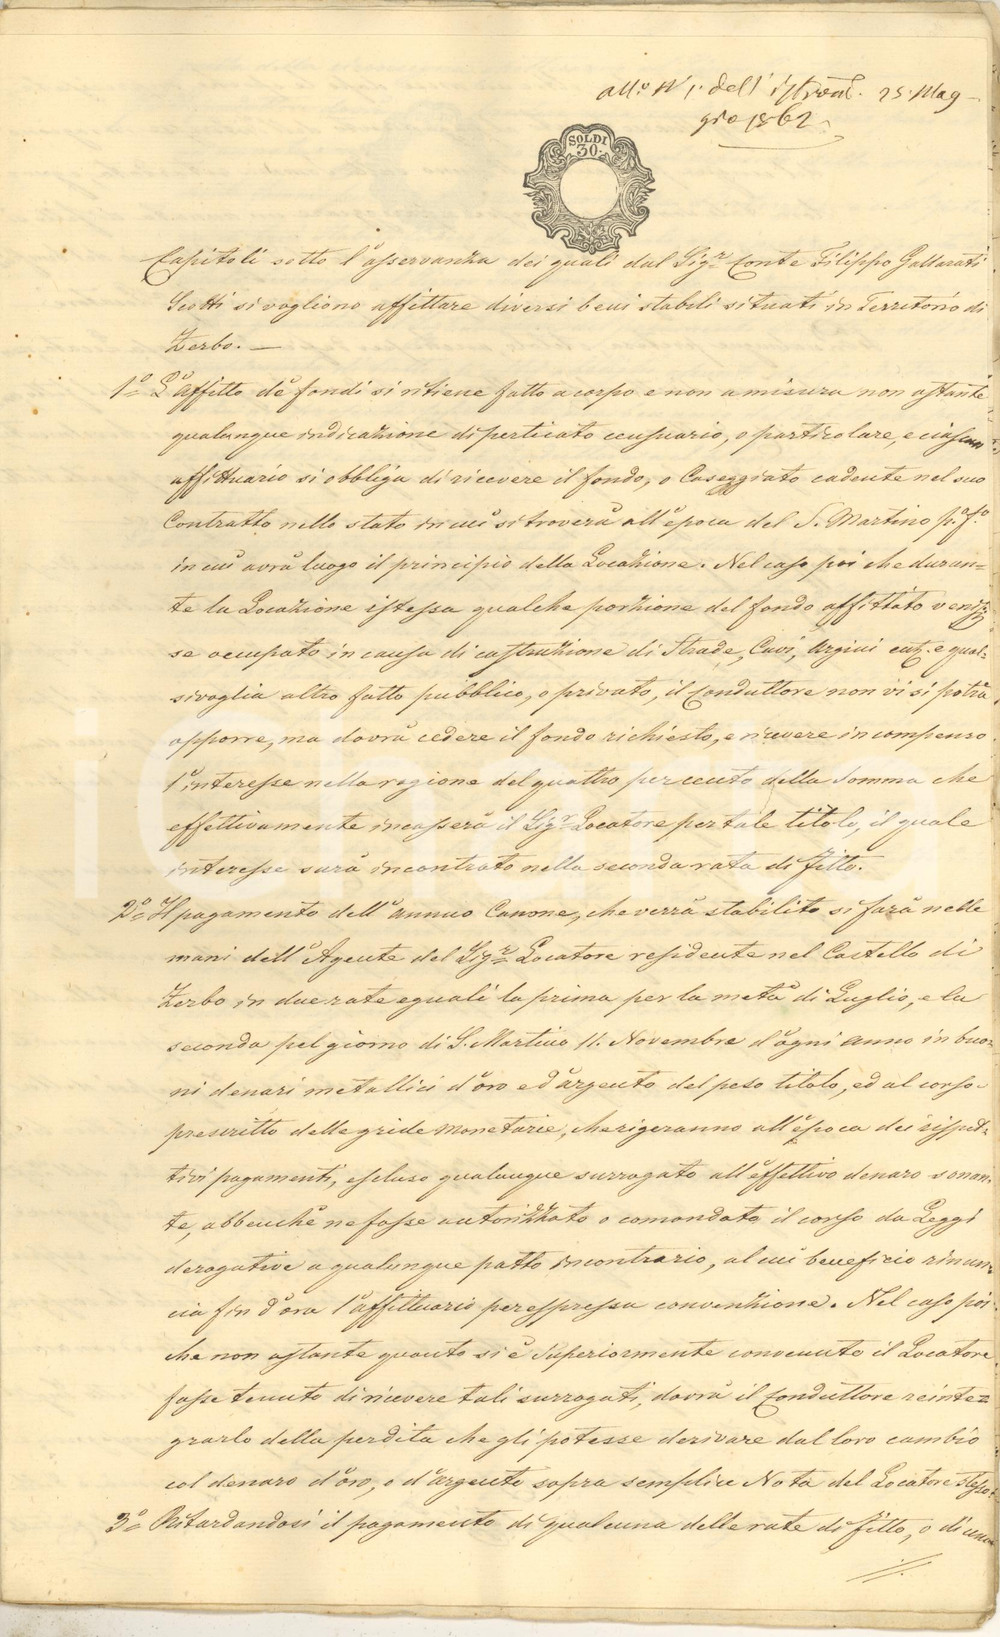 all.º N 1. dell'istrom. 25. Mag-
gio 1862
SOLDI
30.
Capitoli sotto l'osservanza dei quali dal Sigr. Conte Filippo Gallarati
Scotti si vogliono affittare diversi beni stabili situati in Territorio di
Zerbo. —
1º L'affitto de' fondi si ritiene fatto a corpo e non a misura non ostante
qualunque indicazione di perticato censuario, o particolare, e ciascun
affittuario si obbliga di ricevere il fondo, o Caseggiato cadente nel suo
Contratto nello stato in cui si troverà all'epoca del S. Martino p.º f.º
in cui avrà luogo il principio della Locazione. Nel caso poi che duran=
te la Locazione istessa qualche porzione del fondo affittato venis=
se occupato in causa di costruzione di Strade, Cavi, Argini ect. e qual=
sivoglia altro fatto pubblico, o privato, il Conduttore non vi si potrà
opporre, ma dovrà cedere il fondo richiesto, e ricevere in compenso
l'interesse nella ragione del quattro per cento della somma che
effettivamente incasserà il Sigr. Locatore per tale titolo, il quale
interesse sarà incontrato nella seconda rata di fitto.
2º Il pagamento dell'annuo Canone, che verrà stabilito si farà nelle
mani dell'Agente del Sigr. Locatore residente nel Castello di
Zerbo in due rate eguali la prima per la metà di Luglio, e la
seconda pel giorno di S. Martino 11. Novembre d'ogni anno in buo=
ni denari metallici d'oro ed'argento del peso titolo, ed al corso
prescritto delle gride monetarie, che rigeranno all'epoca dei rispet=
tivi pagamenti, escluso qualunque surrogato all'effettivo denaro sonan=
te, abbenchè ne fosse autorizzato o comandato il corso da Leggi
derogative a qualunque patto incontrario, al cui beneficio rinun=
cia fin d'ora l'affittuario per espressa convenzione. Nel caso poi
che non ostante quanto si è superiormente convenuto il Locatore
fosse tenuto di ricevere tali surrogati, dovrà il Conduttore reinte=
grarlo della perdita che gli potesse derivare dal loro cambio
col denaro d'oro, o d'argento sopra semplice Nota del Locatore stesso.
3º Ritardandosi il pagamento di qualcuna delle rate di fitto, o di una